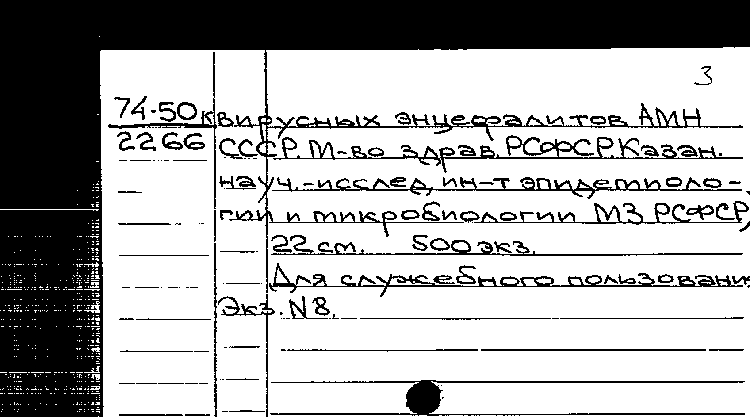 3
74-50к вирусных энцефалитов АМН
2266 СССР. М-во здрав. РСФСР. Казан.
науч.-исслед. ин-т эпидемиоло-
гии и микробиологии МЗ РСФСР,
22 см. 500 экз.
Для служебного пользования
Экз. N 8.